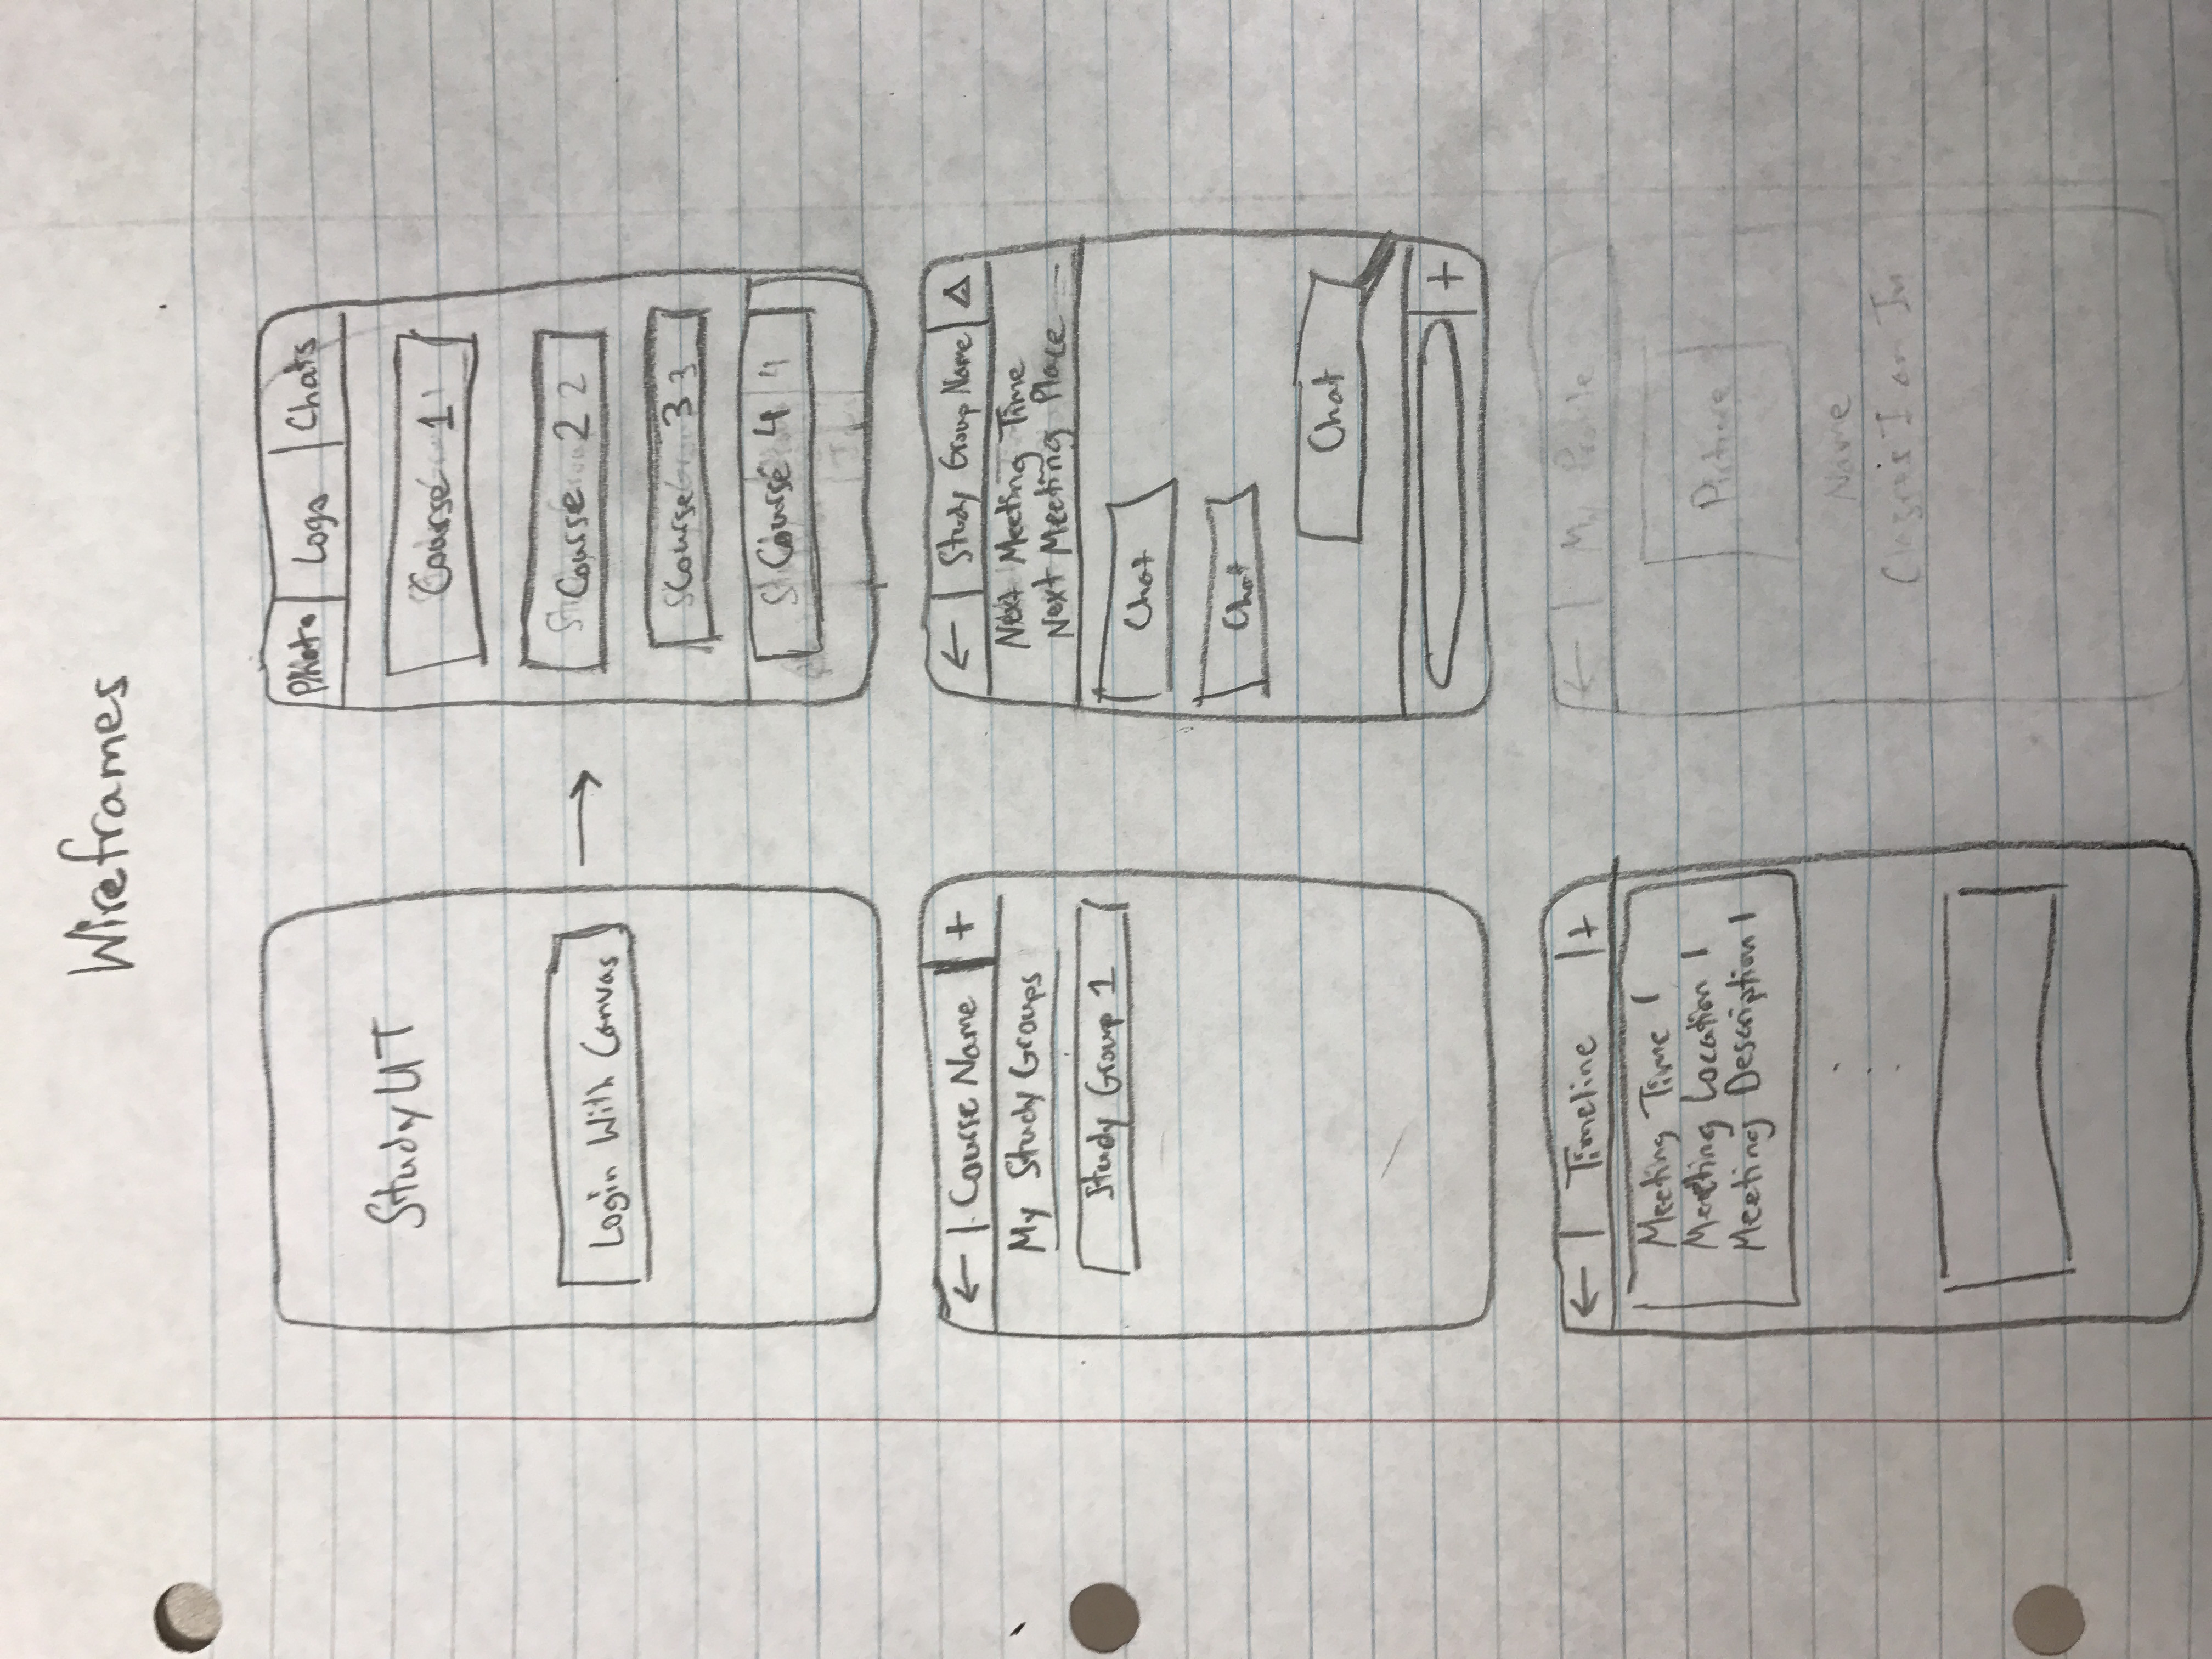 Wireframes
StudyUT
Login With Canvas
Photo Logo Chats
Course 1
Course 2 2
Course 3 3
Course 4 4
← Course Name +
My Study Groups
Study Group 1
← Study Group Name
Next Meeting Time
Next Meeting Place
Chat
Chat
Chat
+
← Timeline +
Meeting Time 1
Meeting Location 1
Meeting Description 1
← My Profile
Picture
Name
Classes I am In